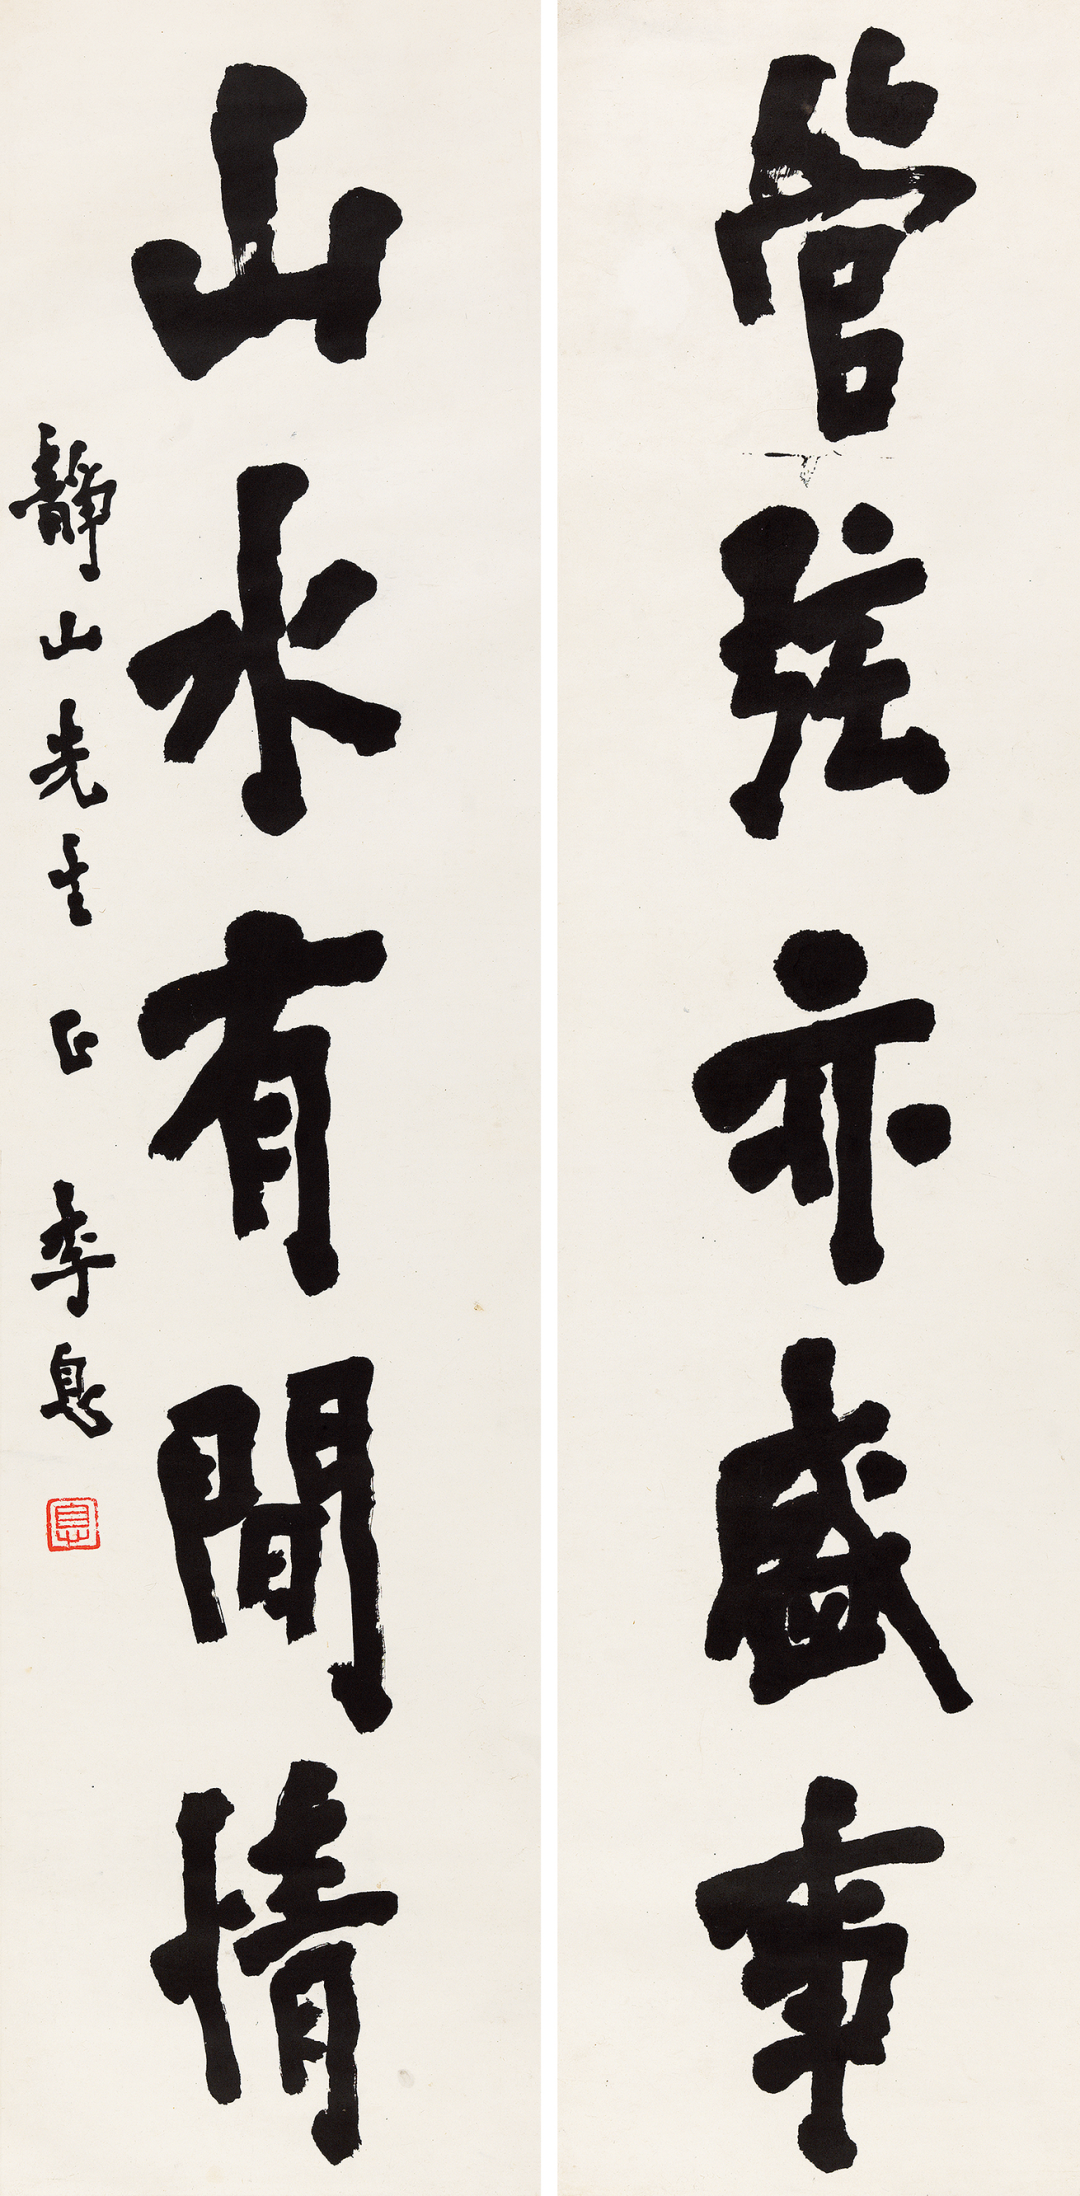 管弦亦盛事
山水有閒情
靜山先生正 李息
息